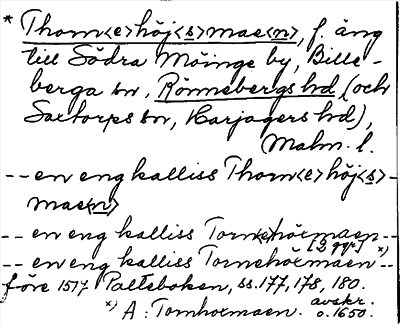 * Thorn<e>höj<s>mae<n>, f. äng
till Södra Möinge by, Bille-
berga sn, Rönnebergs hd (och
Saxtorps sn, Harjagers hd),
Malm. l.
-- en eng kalliss Thorn<e>höj<s>-
mae<n>
-- en eng kalliss Tornehöemaen --
[2 ggr]
-- en eng kalliss Tornehöemaen x) --
före 1517 Palteboken, ss. 177, 178, 180.
x) A: Tornhoemaen. avskr.
o. 1650.